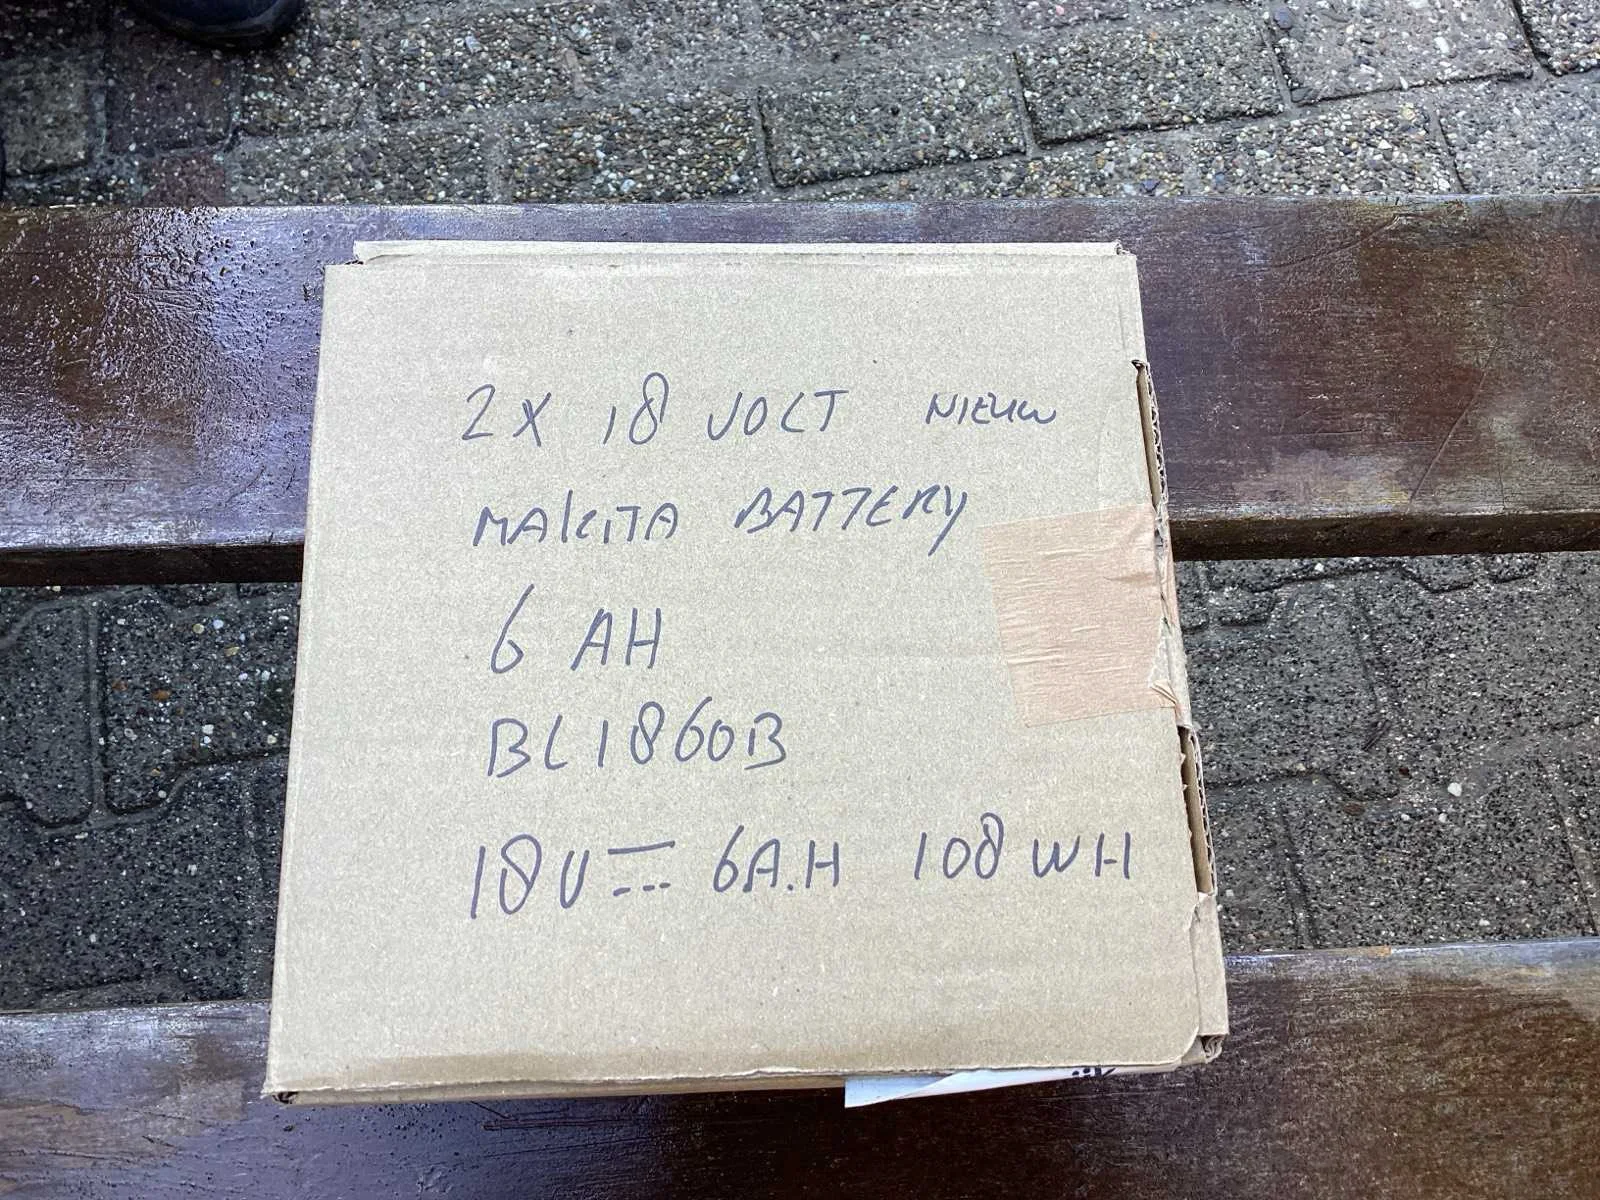 2X 18 VOLT NIEUW
MAKITA BATTERY
6 AH
BL1860B
18V ⎓ 6A.H 108 WH